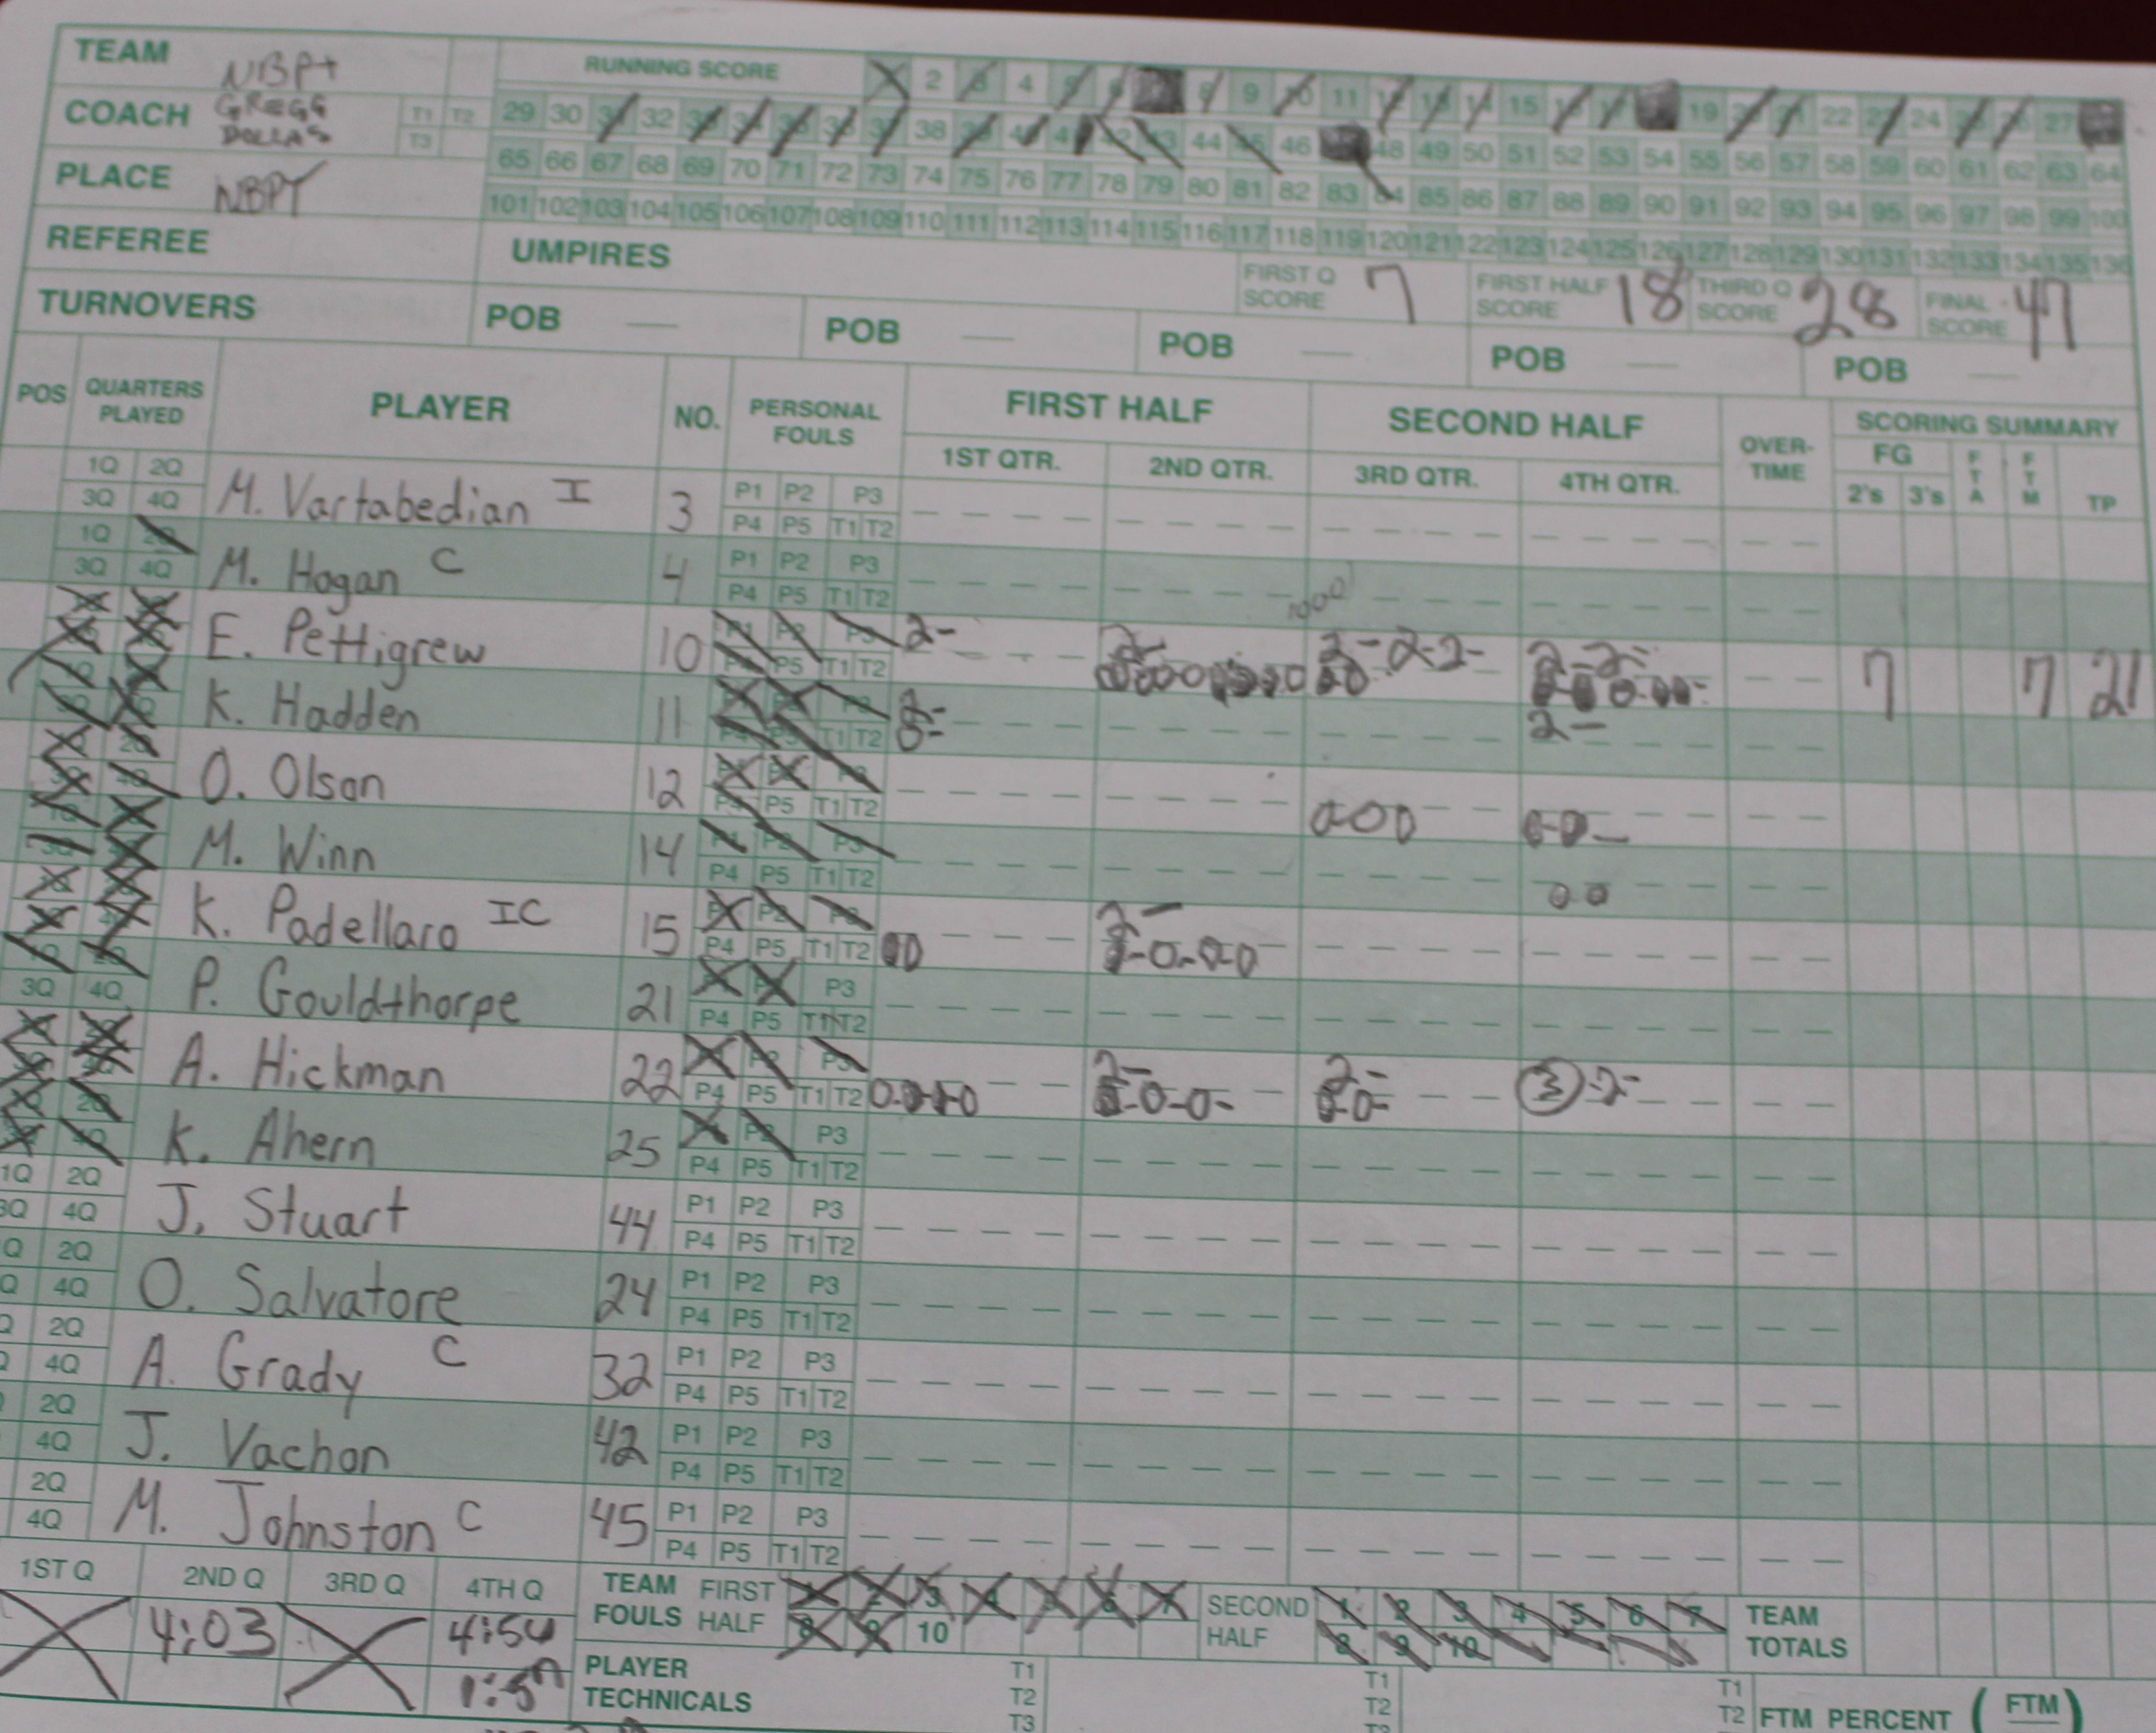 TEAM NBPT RUNNING SCORE 2 4 9 11 15 19 22 24 27
COACH GREGG DOLLAS T1 T2 T3 29 30 32 38 44 46 48 49 50 51 52 53 54 55 56 57 58 59 60 61 62 63 64
65 66 67 68 69 70 71 72 73 74 75 76 77 78 79 80 81 82 83 84 85 86 87 88 89 90 91 92 93 94 95 96 97 98 99 100
PLACE NBPT 101 102 103 104 105 106 107 108 109 110 111 112 113 114 115 116 117 118 119 120 121 122 123 124 125 126 127 128 129 130 131 132 133 134 135 136
REFEREE UMPIRES FIRST Q SCORE 7 FIRST HALF SCORE 18 THIRD Q SCORE 28 FINAL SCORE 47
TURNOVERS POB POB POB POB POB
POS QUARTERS PLAYED PLAYER NO. PERSONAL FOULS FIRST HALF SECOND HALF OVER-TIME SCORING SUMMARY
1ST QTR. 2ND QTR. 3RD QTR. 4TH QTR. FG 2's 3's FTA FTM TP
1Q 2Q 3Q 4Q M. Vartabedian I 3 P1 P2 P3 P4 P5 T1 T2
1Q 3Q 4Q M. Hogan C 4 P1 P2 P3 P4 P5 T1 T2
E. Pettigrew 10 P5 T1 T2 2 2 2 2 2 2 2 7 7 21
K. Hadden 11 T1 T2 2 2
O. Olson 12 P5 T1 T2
M. Winn 14 P4 P5 T1 T2
K. Padellaro IC 15 P4 P5 T1 T2 2
3Q 4Q P. Gouldthorpe 21 P3 P4 P5 T1 T2
A. Hickman 22 P4 P5 T1 T2 2 2 3 2
K. Ahern 25 P3 P4 P5 T1 T2
1Q 2Q 3Q 4Q J. Stuart 44 P1 P2 P3 P4 P5 T1 T2
Q 2Q Q 4Q O. Salvatore 24 P1 P2 P3 P4 P5 T1 T2
2Q 4Q A. Grady C 32 P1 P2 P3 P4 P5 T1 T2
2Q 4Q J. Vachon 42 P1 P2 P3 P4 P5 T1 T2
2Q 4Q M. Johnston C 45 P1 P2 P3 P4 P5 T1 T2
1ST Q 2ND Q 3RD Q 4TH Q TEAM FOULS FIRST HALF 1 2 3 4 5 6 7 8 9 10 SECOND HALF 1 2 3 4 5 6 7 8 9 10 TEAM TOTALS
4:03 4:54
PLAYER TECHNICALS T1 T2 T3 T1 T2 T3 T1 T2 FTM PERCENT ( FTM )